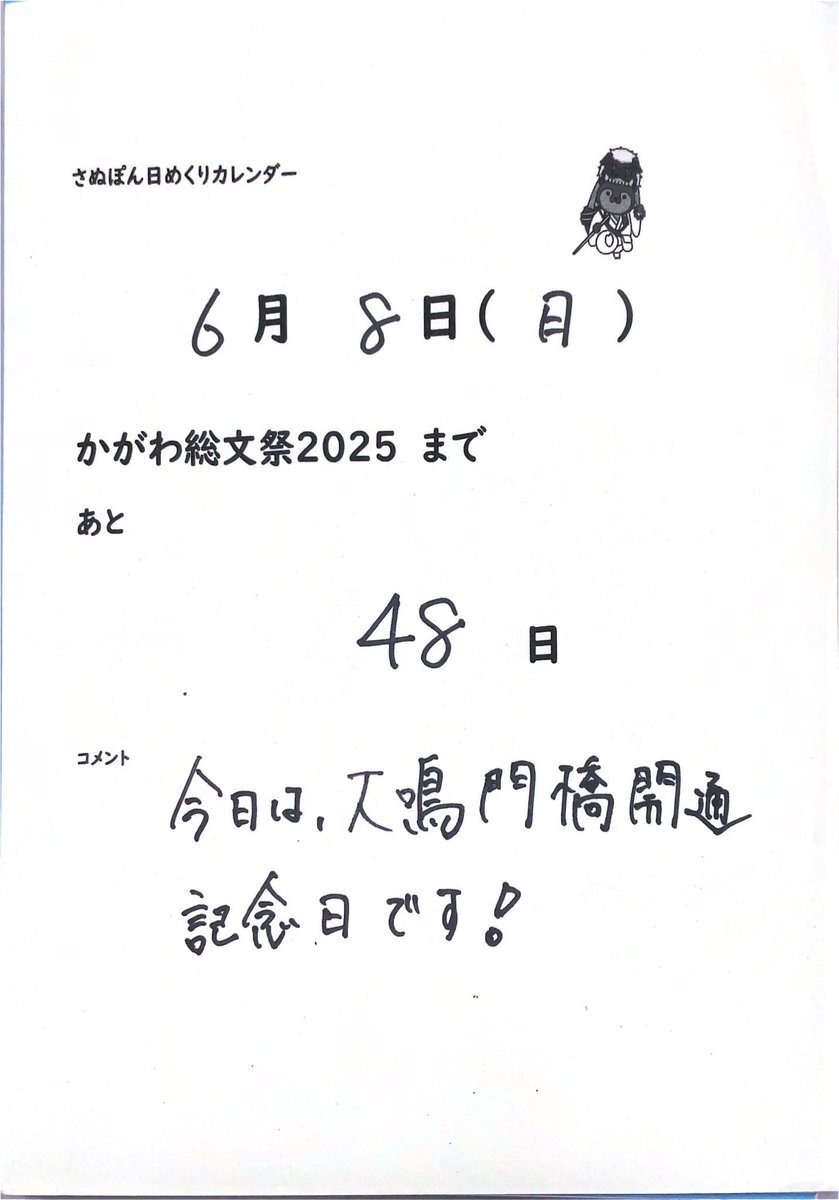 さぬぽん日めくりカレンダー
6月 8日(日)
かがわ総文祭2025 まで
あと
48 日
コメント
今日は、大鳴門橋開通
記念日です!